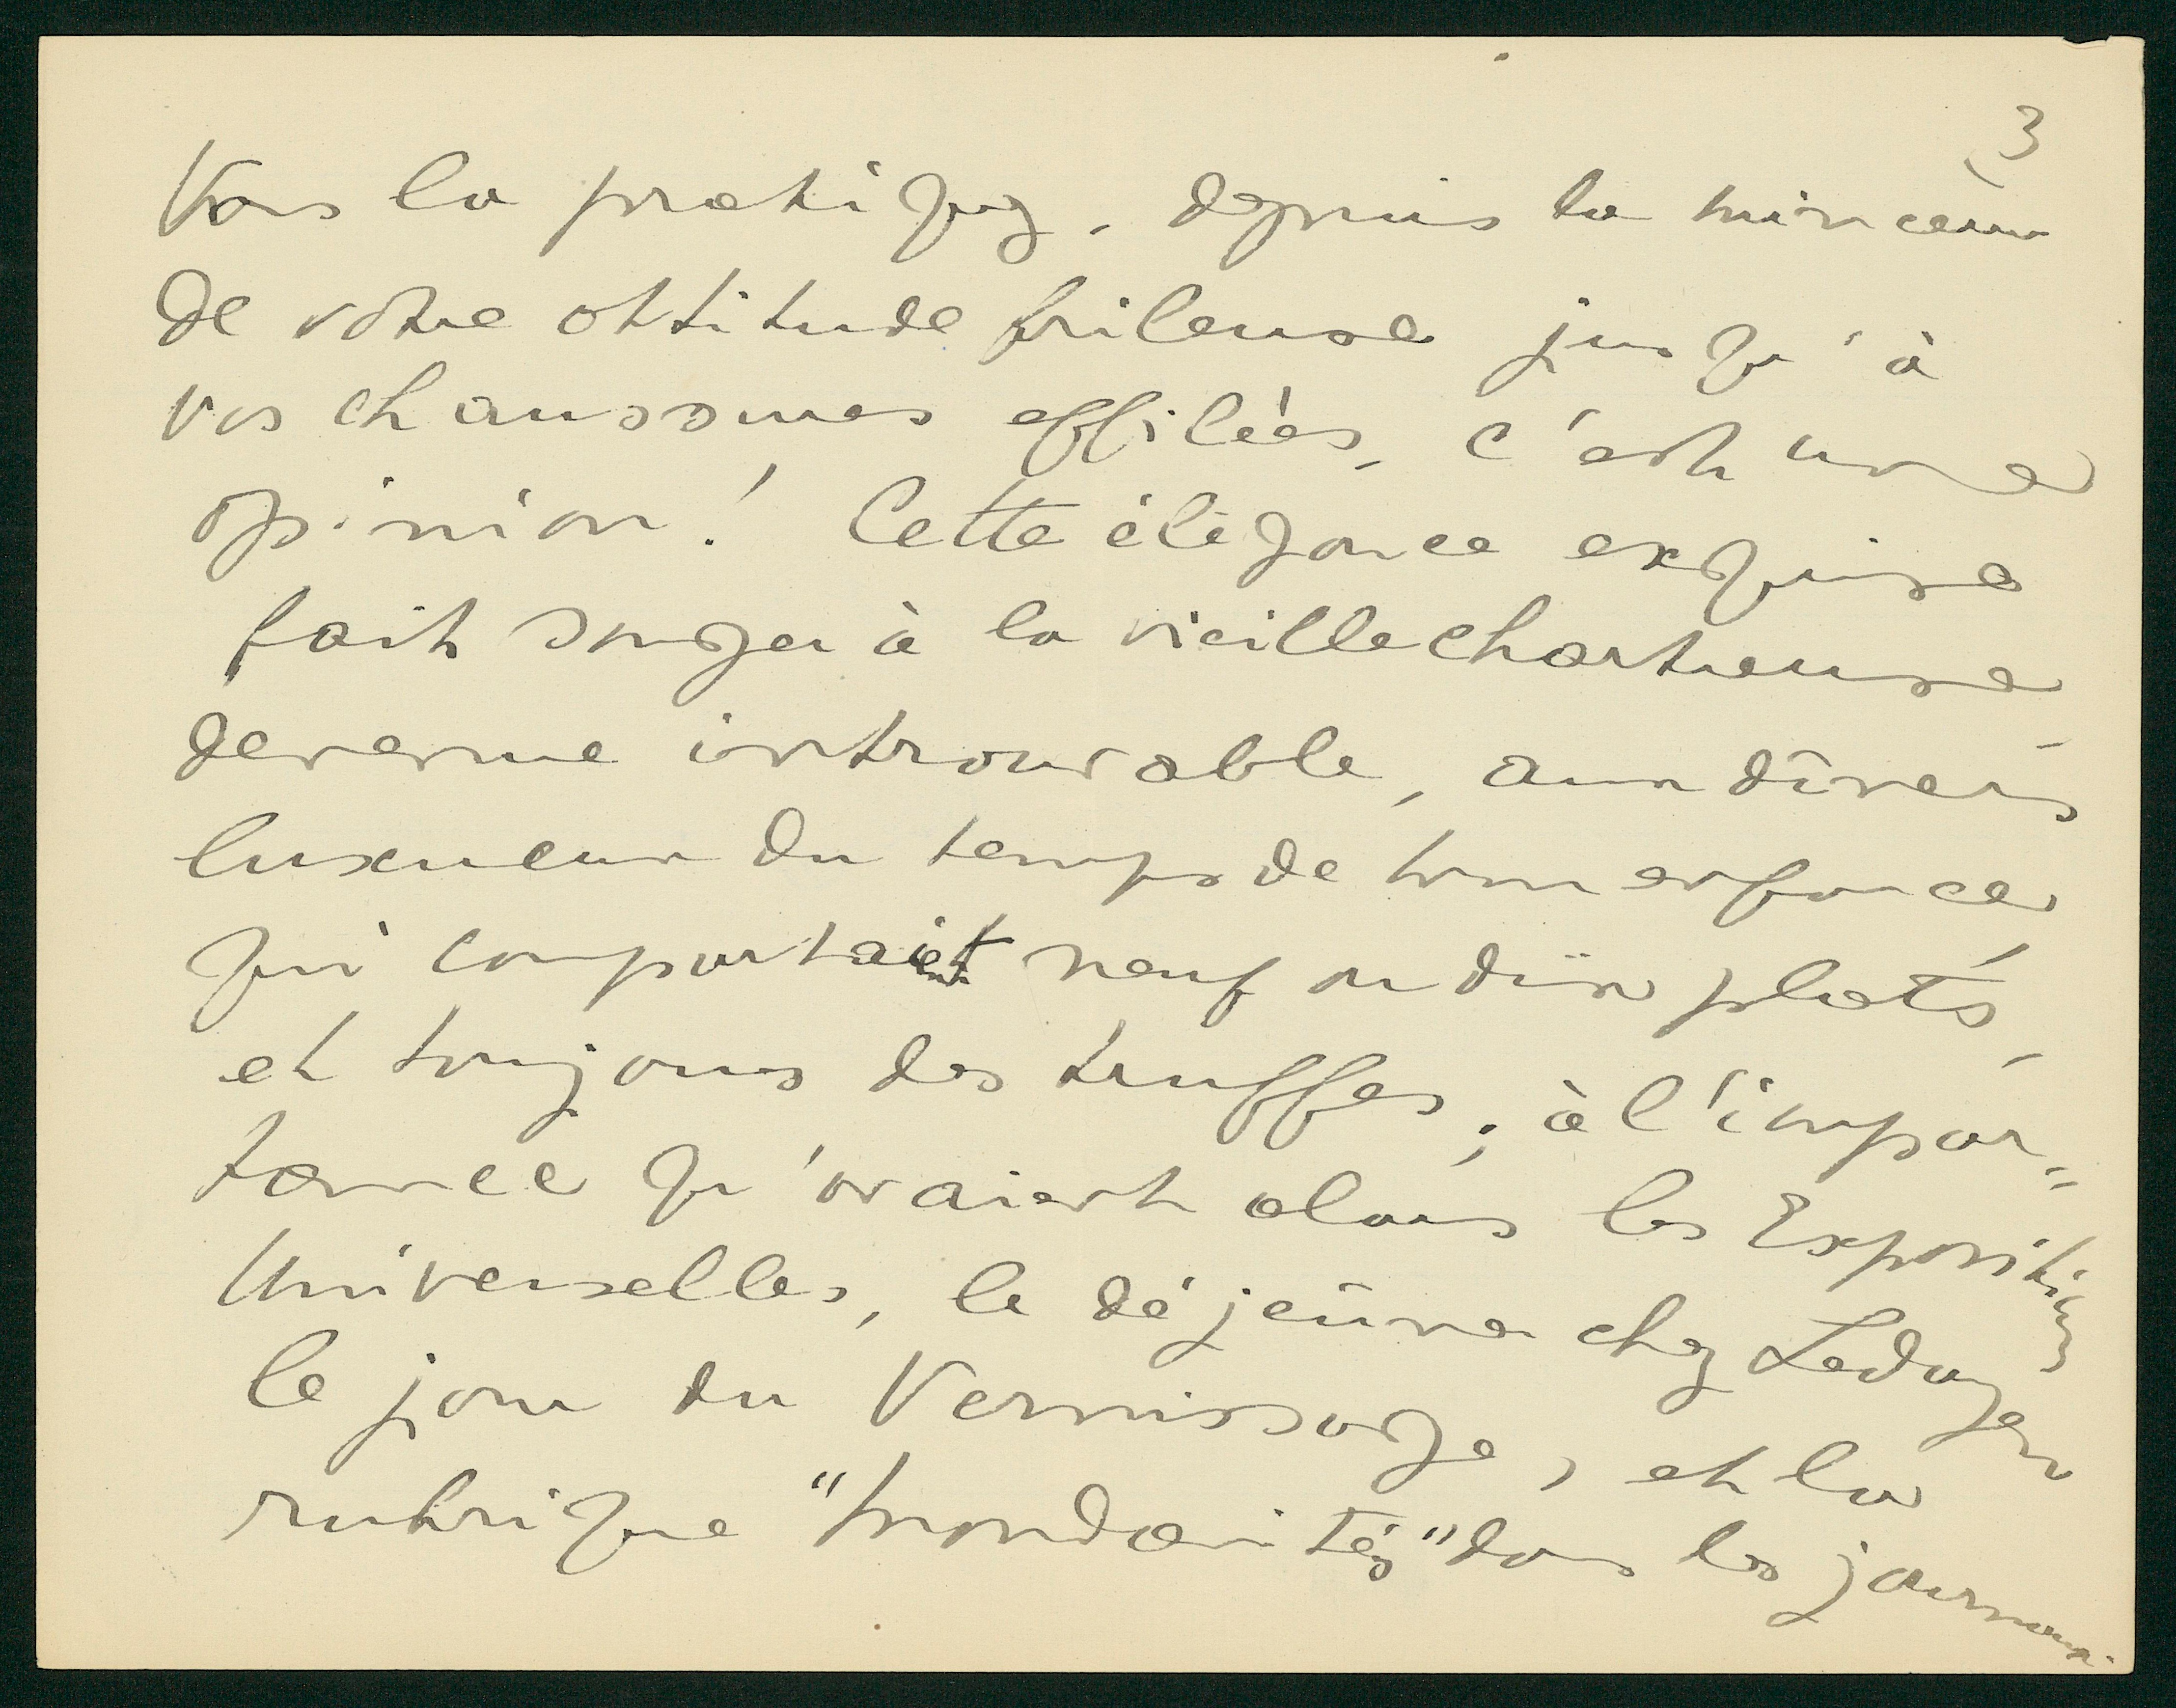 3
Vous la pratiquez, depuis la minceur
de votre attitude frileuse jusqu'à
vos chaussures effilées, c'est une
opinion! Cette élégance exquise
fait songer à la vieille chartreuse
devenue introuvable, aux dîners
luxueux du temps de mon enfance
qui comportaient neuf ou dix plats,
et toujours des truffes; à l'impor-
tance qu'avaient alors les Expositions
Universelles, le déjeûner chez Ledoyen
le jour du Vernissage, et la
rubrique "mondanités" dans les journaux.